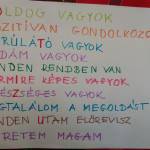 OLDOG VAGYOK
SZITÍVAN GONDOLKOZO
RÜLÁTÓ VAGYOK
DÁM VAGYOK
NDEN RENDBEN VAN
RMIRE KÉPES VAGYOK
ÉSZSÉGES VAGYOK
GTALÁLOM A MEGOLDÁST
NDEN UTAM ELŐREVISZ
ERETEM MAGAM